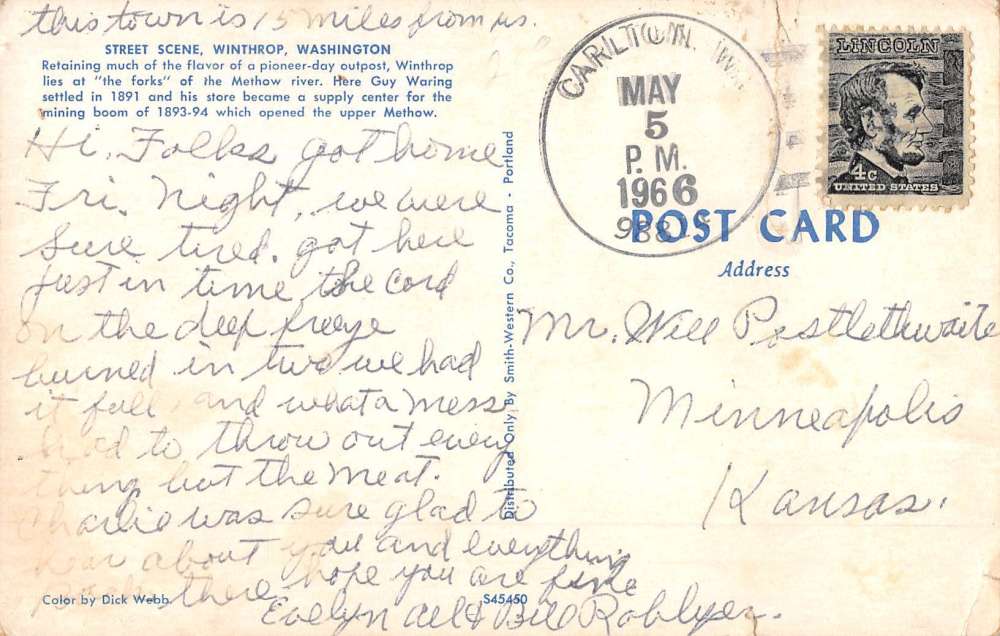 this town is 15 miles from us.
STREET SCENE, WINTHROP, WASHINGTON
Retaining much of the flavor of a pioneer-day outpost, Winthrop
lies at "the forks" of the Methow river. Here Guy Waring
settled in 1891 and his store became a supply center for the
mining boom of 1893-94 which opened the upper Methow.
Hi, Folks got home
Fri. Night, we were
Sure tired. got here
just in time, the cord
on the deep freeze
burned in two we had
it full, and what a mess
had to throw out every
thing but the meat.
Charlie was sure glad to
hear about you and everything
there, hope you are fine
Evelyn and Bill Roblyer.
Color by Dick Webb.
S45450
Distributed Only By Smith-Western Co., Tacoma - Portland
CARLTON, WA
MAY
5
P. M.
1966
988
LINCOLN
4c
UNITED STATES
POST CARD
Address
Mr. Will Postlethwaite
Minneapolis
Kansas.